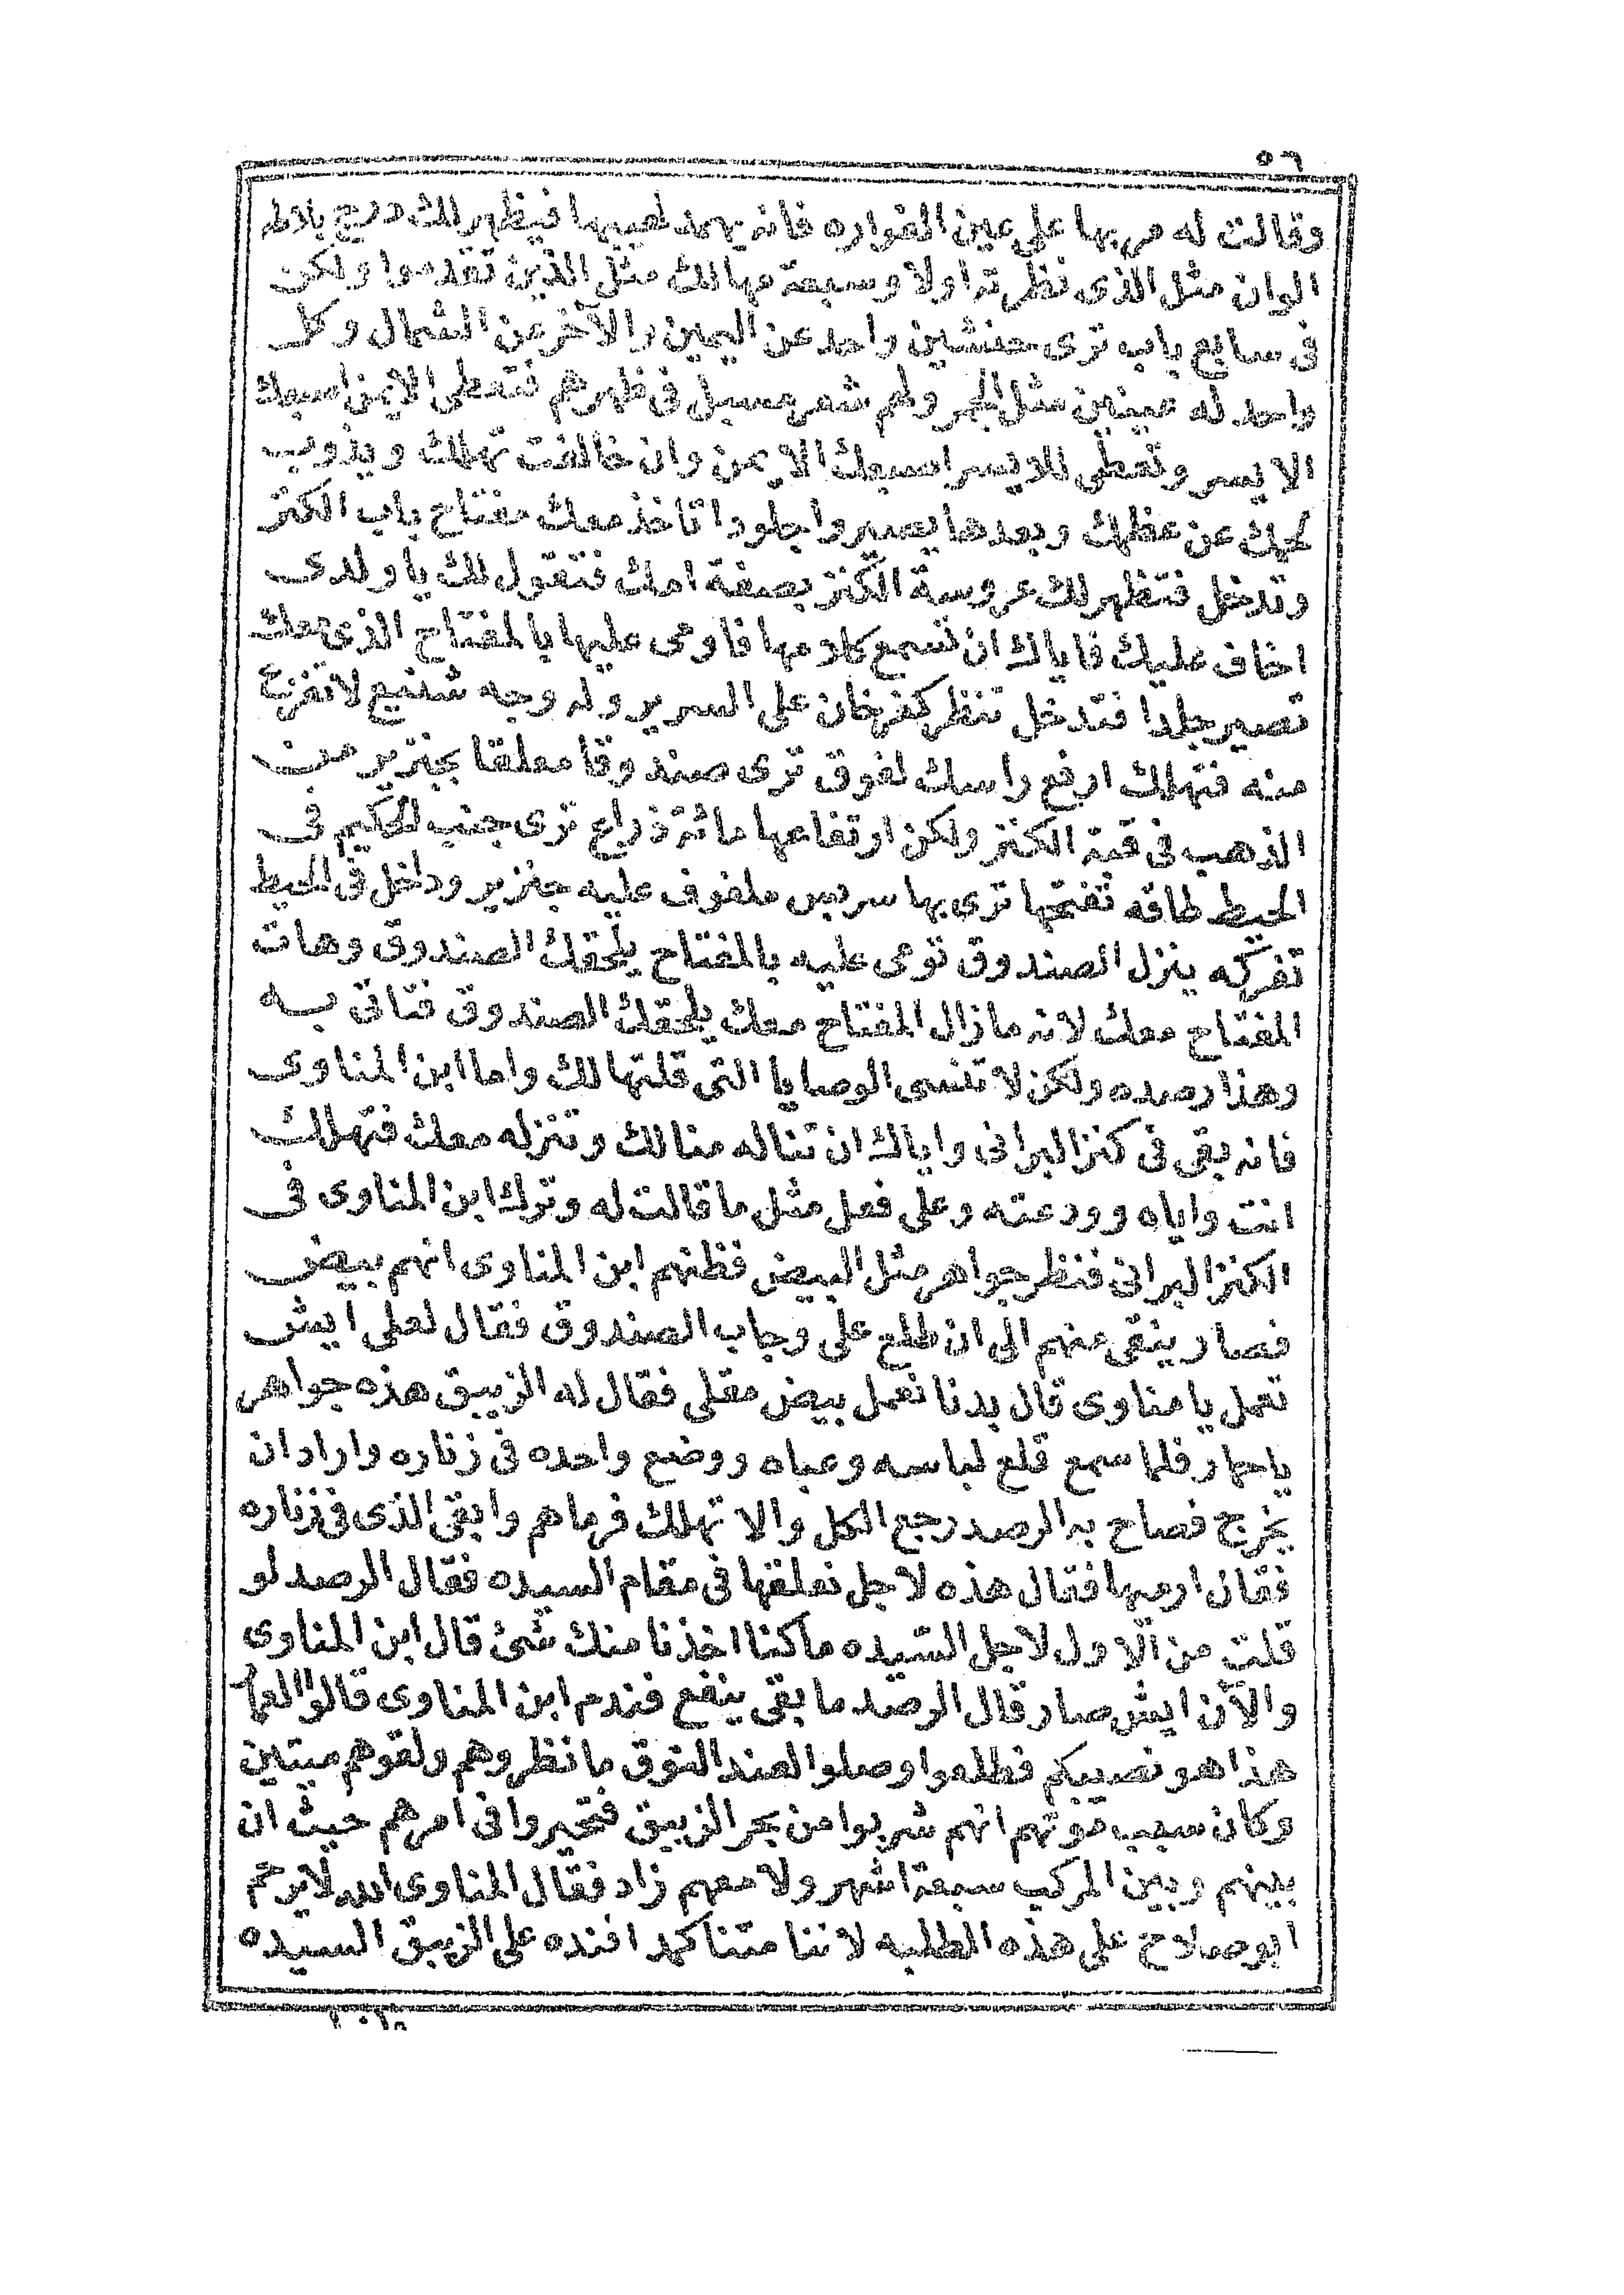 ٥٦
وقالت له مر بها على عين الفواره فانه يهمد لهيبها فيظهر لك درج بلاطه
الوان مثل الذى نظرته أولا وسبعة مهالك مثل الذين تقدموا ولكن
فى سابع باب ترى حنشين واحد عن اليمين والآخر عن الشمال وكل
واحد له عينين مثل الجمر ولهم شعر مسبل فى ظهرهم فتعطى الايمن اصبعك
الايسر وتعطى للايسر اصبعك الايمن وان خالفت تهلك ويذوب
لحمك عن عظمك وبعدها يصيروا جلودا تاخذ معك مفتاح باب الكنز
وتدخل فتظهر لك عروسة الكنز بصفة امك فتقول لك يا ولدى
اخاف عليك فاياك ان تسمع كلامها فاومى عليها بالمفتاح الذى معك
تصير جلدا فتدخل تنظر كفرخان على السرير وله وجه شنيع لا تفزع
منه فتهلك ارفع راسك لفوق ترى صندوقا معلقا بجنزير من
الذهب فى قبة الكنز ولكن ارتفاعها مائة ذراع ترى جنب الحكيم فى
الحيط طاقه تفتحها ترى بها سريس ملفوف عليه جنزير وداخل فى الحيط
تفركه ينزل الصندوق تومى عليه بالمفتاح يلحقك الصندوق وهات
المفتاح معك لانه مازال المفتاح معك يلحقك الصندوق فتاتى به
وهذا رصده ولكن لا تنسى الوصايا التى قلتها لك واما ابن المناوى
فانه بقى فى كنز البرانى واياك ان تناله منالك وتنزله معك فتهلك
انت واياه وودعته وعلى فعل مثل ما قالت له وترك ابن المناوى فى
الكنز البرانى فنظر جواهر مثل البيض فظنهم ابن المناوى انهم بيض
فصار ينقى منهم الى ان طلع على وجاب الصندوق فقال لعلى ايش
تعمل يا مناوى قال بدنا نعمل بيض مقلى فقال له الزيبق هذه جواهر
ياحمار فلما سمع قلع لباسه وعباه ووضع واحده فى زناره واراد ان
يخرج فصاح به الرصد رجع الكل والا تهلك فرماهم وابقى الذى فى زناره
فقال ارميها فقال هذه لاجل نعلقها فى مقام السيده فقال الرصد لو
قلت من الآول لاجل السيده ما كنا اخذنا منك شئ قال ابن المناوى
والآن ايش صار قال الرصد ما بقى ينفع فندم ابن المناوى قالوا
هذا هو نصيبكم فطلعوا وصلوا لعند النوق ما نظروهم ولقوهم ميتين
وكان سبب موتهم انهم شربوا من بحر الزيبق فتحيروا فى امرهم حيث ان
بينهم وبين المركب سبعة اشهر ولا معهم زاد فقال المناوى الله لا يرحم
ابو صلاح على هذه الطلبه لاننا متنا كمدا فنده على الزيبق السيده